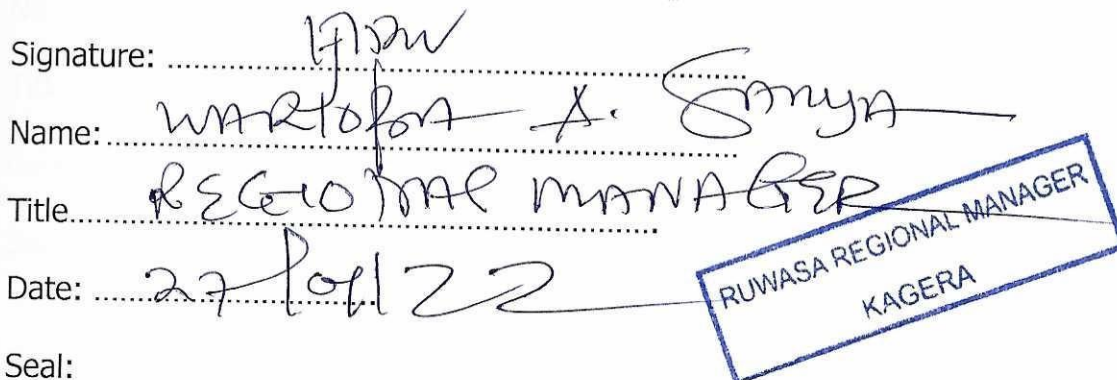 Signature:
Name: WARIOBA A. SANYA
Title REGIONAL MANAGER
Date: 27/04/22
RUWASA REGIONAL MANAGER
KAGERA
Seal: